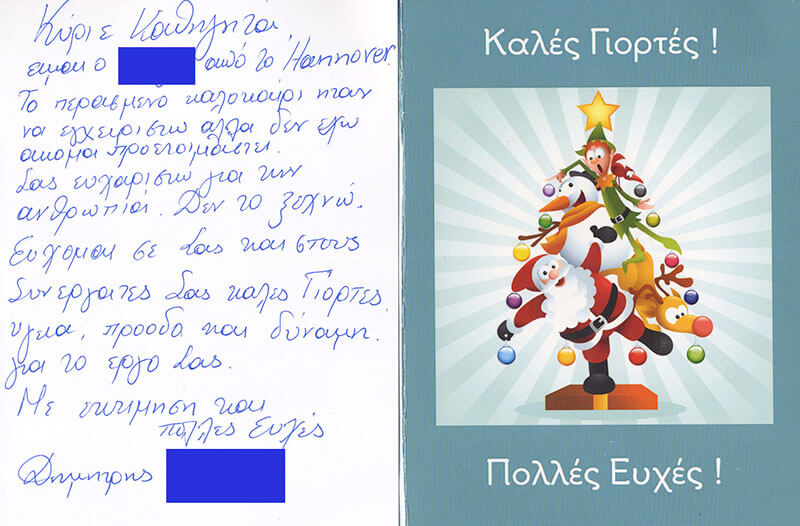 Κύριε Καθηγητά,
ειμαι ο από το Hannover.
Το περασμενο καλοκαιρι ηταν
να εγχειριστω αλλα δεν εγω
ακομα προετοιμαστει.
Σας ευχαριστω για την
ανθρωπιά. Δεν το ξεχνώ.
Ευχομαι σε Σας και στους
Συνεργατες Σας καλες Γιορτες,
υγεια, προοδο και δύναμη
για το εργο Σας.
Με εκτιμηση και
πολλες Ευχές
Δημητρης
Καλές Γιορτές !
Πολλές Ευχές !